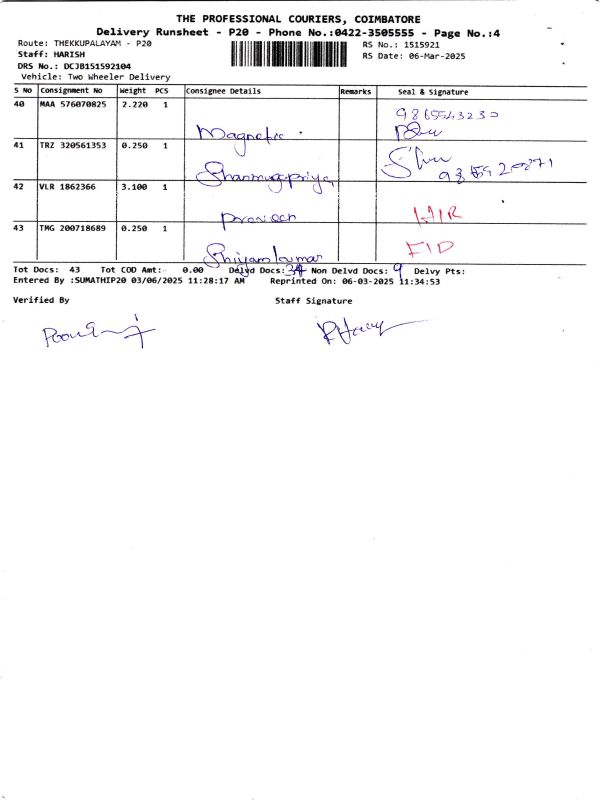 THE PROFESSIONAL COURIERS, COIMBATORE
Delivery Runsheet - P20 - Phone No.:0422-3505555 - Page No.:4
Route: THEKKUPALAYAM - P20 RS No.: 1515921
Staff: HARISH RS Date: 06-Mar-2025
DRS No.: DCJB151592104
Vehicle: Two Wheeler Delivery
S NO Consignment No Weight PCS Consignee Details Remarks Seal & Signature
40 MAA 576070825 2.220 1 Magnetic 9865543230
41 TRZ 320561353 0.250 1 Shanmugapriya
42 VLR 1862366 3.100 1 praveen
43 TMG 200718689 0.250 1 Shiyamkumar FID
Tot Docs: 43 Tot COD Amt: 0.00 Delvd Docs: 34 Non Delvd Docs: 9 Delvy Pts:
Entered By :SUMATHIP20 03/06/2025 11:28:17 AM Reprinted On: 06-03-2025 11:34:53
Verified By Staff Signature